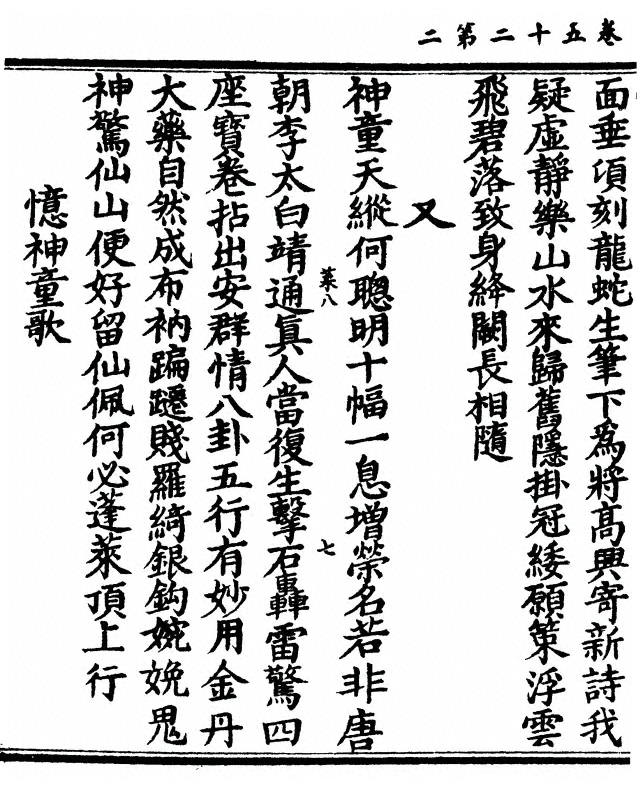 卷五十二第二
面垂項刻龍蛇生筆下為將高興寄新詩我
疑虛靜樂山水來歸舊隱掛冠緌願策浮雲
飛碧落致身絳闕長相隨
又
神童天縱何聰明十幅一息增榮名若非唐
朝李太白靖通真人當復生擊石轟雷驚四
菜八
七
座寶卷拈出安群情八卦五行有妙用金丹
大藥自然成布衲蹁躚賤羅綺銀鈎婉娩鬼
神驚仙山便好留仙佩何必蓬萊頂上行
憶神童歌